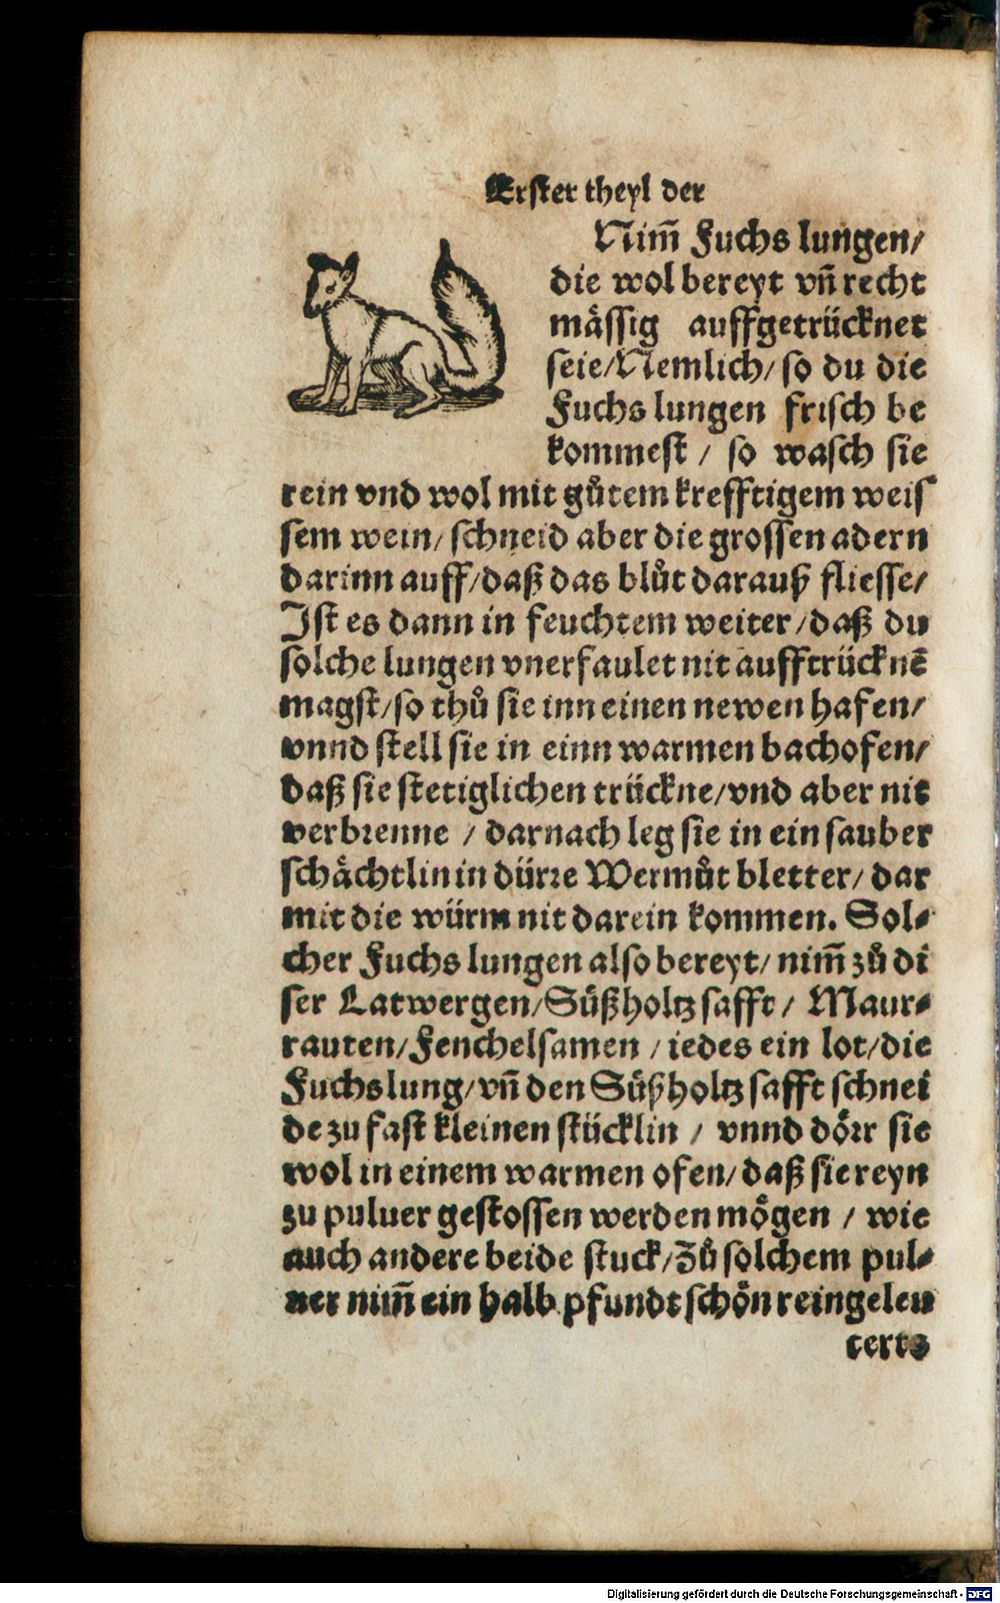 Erster theyl der
Nim̃ Fuchs lungen/
die wol bereyt vñ recht
mässig auffgetrücknet
seie/Nemlich/so du die
Fuchs lungen frisch be
kommest / so wasch sie
rein vnd wol mit gůtem krefftigem weis
sem wein/schneid aber die grossen adern
darinn auff/daß das blůt darauß fliesse/
Ist es dann in feuchtem weiter/daß du
solche lungen vnerfaulet nit aufftrücknē
magst/so thů sie inn einen newen hafen/
vnnd stell sie in einn warmen bachofen/
daß sie stetiglichen trückne/vnd aber nit
verbrenne / darnach leg sie in ein sauber
schächtlin in dürre Wermůt bletter/dar
mit die würm nit darein kommen. Sol-
cher Fuchs lungen also bereyt/nim̃ zů di
ser Latwergen/Süßholtz safft/ Maur-
rauten/Fenchelsamen /iedes ein lot/die
Fuchs lung/vñ den Süßholtz safft schnei
de zu fast kleinen stücklin / vnnd dörr sie
wol in einem warmen ofen/daß sie reyn
zu puluer gestossen werden mögen / wie
auch andere beide stuck/Zů solchem pul-
uer nim̃ ein halb pfundt schön reingeleu
terts
Digitalisierung gefördert durch die Deutsche Forschungsgemeinschaft - DFG